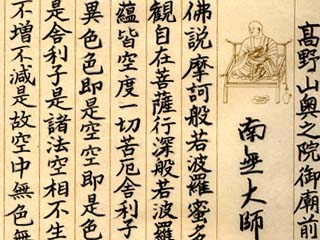 髙野山奥之院御廟前
南無大師
佛説摩訶般若波羅蜜多
觀自在菩薩行深般若波羅
蘊皆空度一切苦厄舎利子
異色色即是空空即是色
是舎利子是諸法空相不生
不増不減是故空中無色無